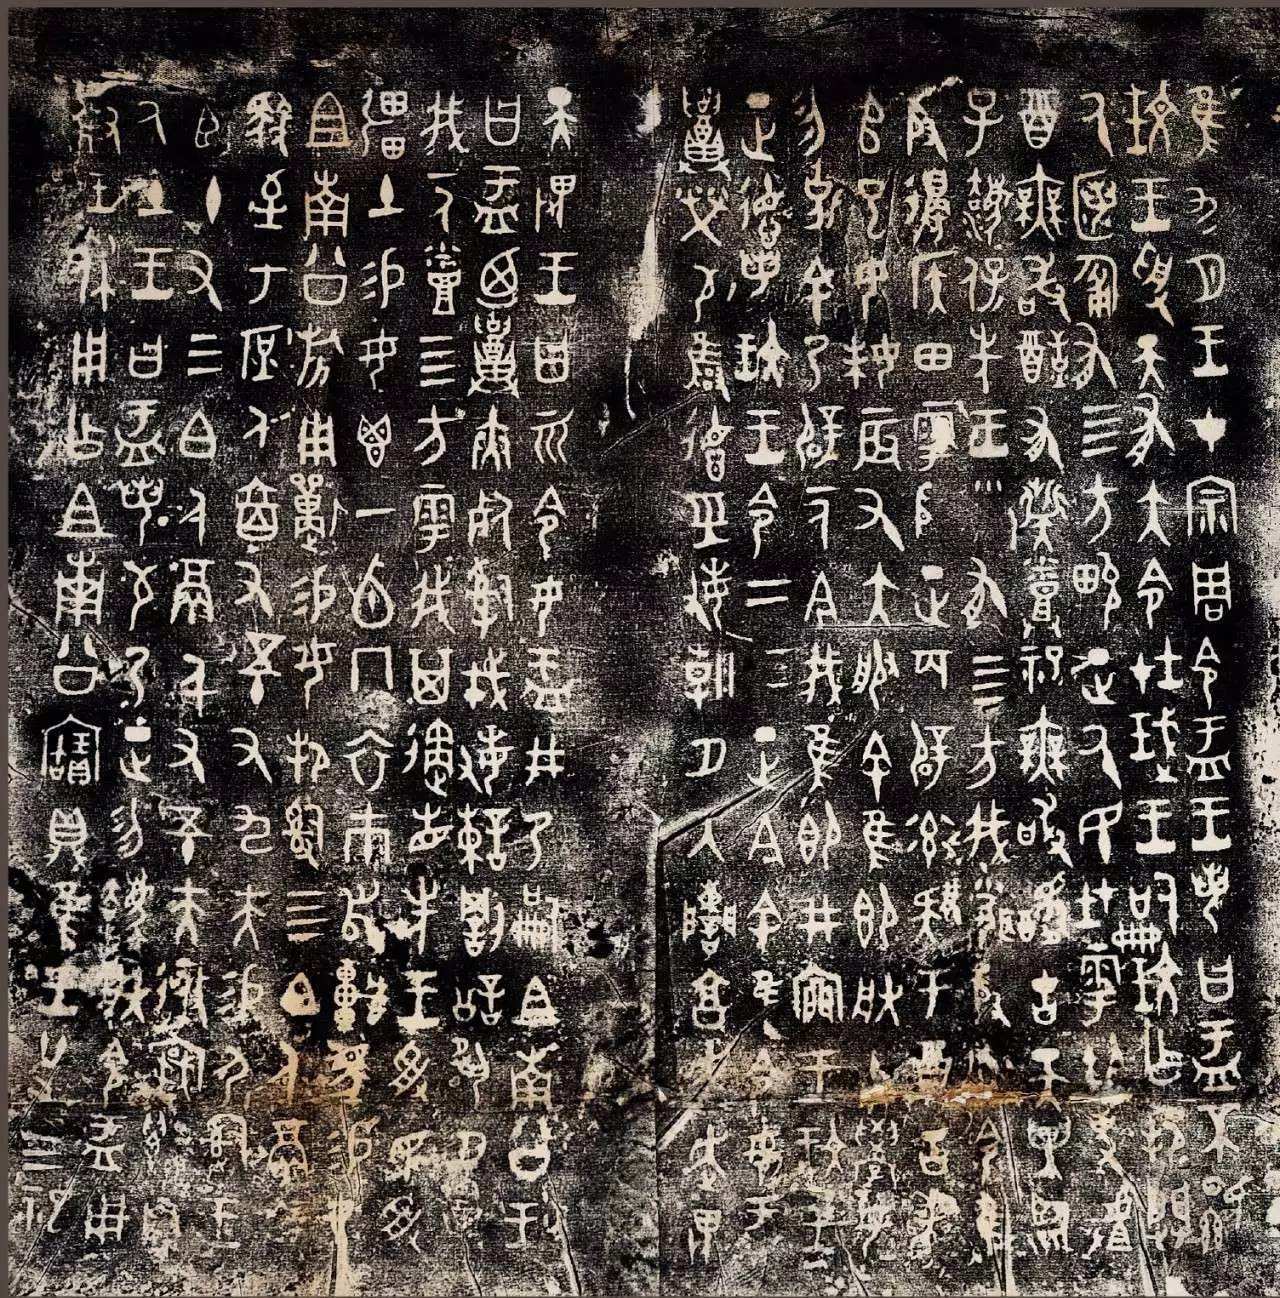 隹九月王才宗周令盂王若曰盂不顯
玟王受天有大令在珷王嗣玟乍邦闢
厥匿匍有四方畯正厥民在雩御事䖒
酉無敢醻有祡蒸祀無敢擾古天異臨
子法保先王有四方我聞殷述令隹
殷邊侯田雩殷正百辟率肄于酉古喪
師巳女妹辰又大服余隹即朕小學女
勿剋余乃辟一人今我隹即井廩于玟王
正德若玟王令二三正今余隹令女盂
召榮敬雍德巠敏朝夕入讕享奔走畏
天畏王曰𠀠令女盂井乃嗣且南公王
曰盂迺召夾死司戎敏諫罰訟夙夕召
我一人烝四方雩我其遹省先王受民受
疆土易女鬯一卣冂衣巿舄車馬易乃
且南公旂用遷易女邦司四白人鬲自
馭至于庶人六百又五十又九夫易尸司王
臣十又三白人鬲千又五十夫遷自
厥土王曰盂若敬乃正勿法朕令盂用
對王休用乍且南公寶鼎隹王廿又三祀